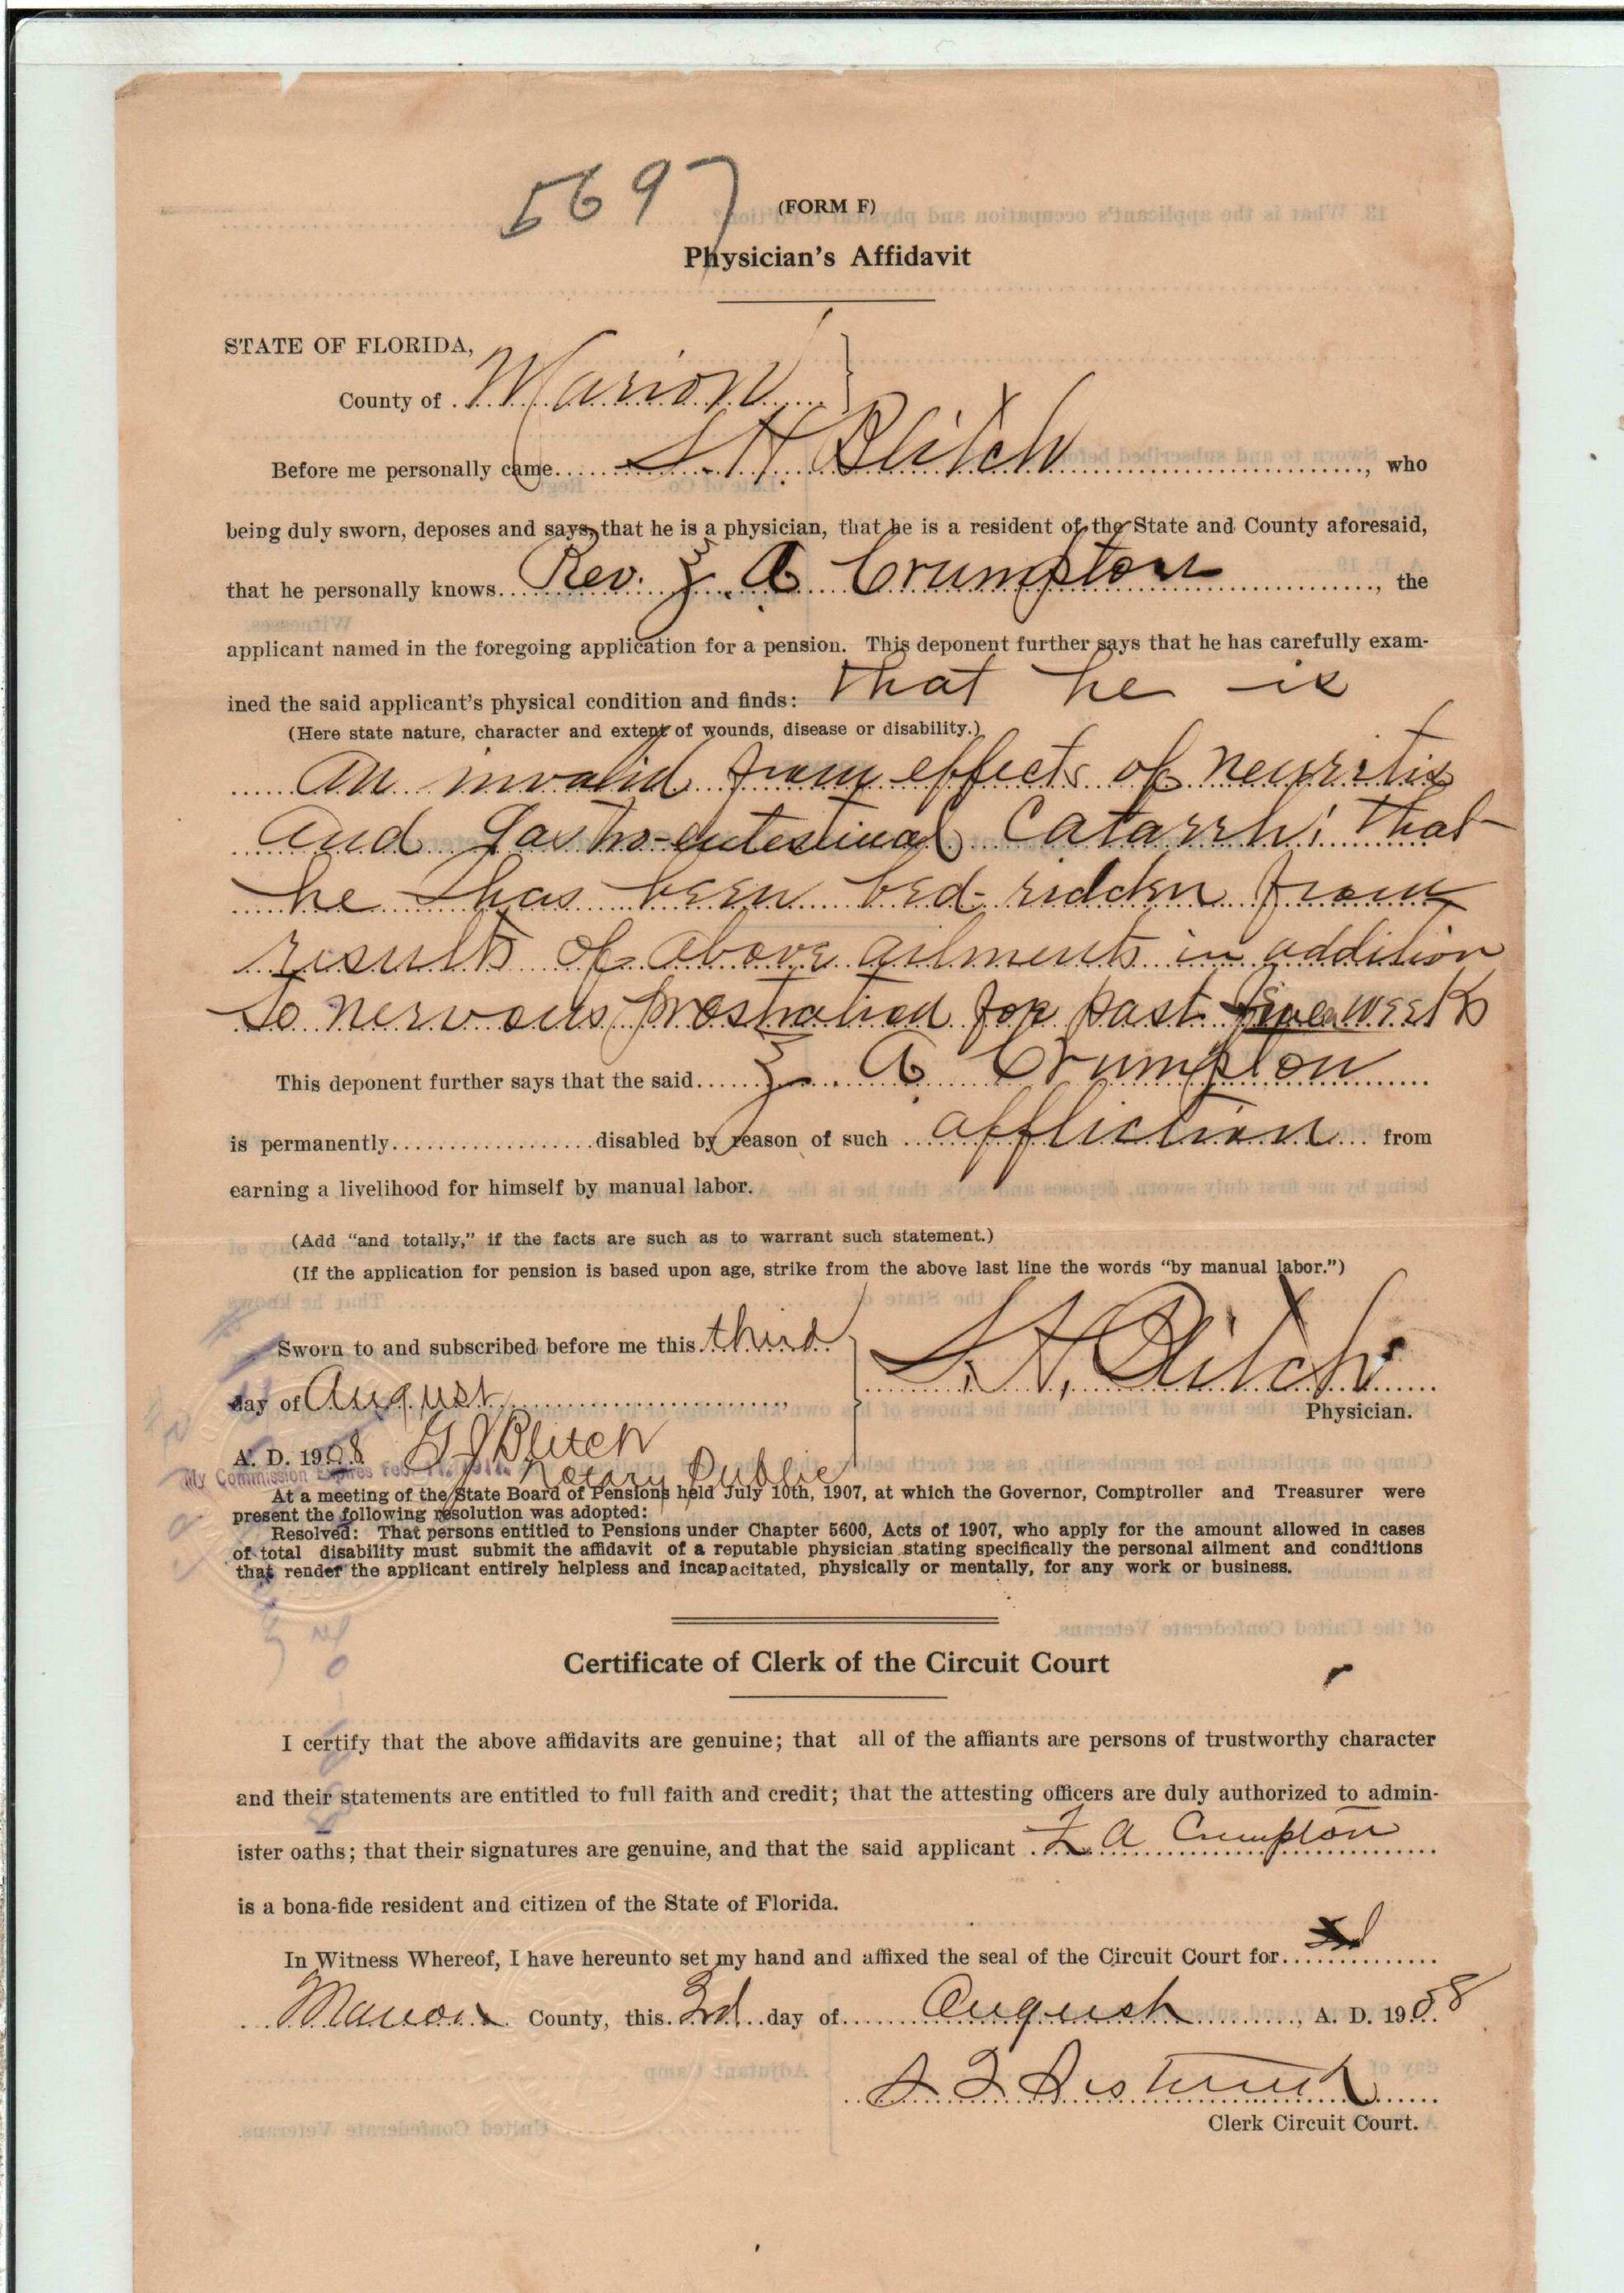 5697
(FORM F)
Physician's Affidavit
STATE OF FLORIDA,
County of Marion
Before me personally came S. H. Blitch, who
being duly sworn, deposes and says, that he is a physician, that he is a resident of the State and County aforesaid,
that he personally knows Rev. Z. A. Crumpton, the
applicant named in the foregoing application for a pension. This deponent further says that he has carefully exam-
ined the said applicant's physical condition and finds: that he is
(Here state nature, character and extent of wounds, disease or disability.)
an invalid from effects of neuritis
and Gastro-intestinal Catarrh; that
he has been bed-ridden from
results of above ailments in addition
to nervous prostration for past five weeks
This deponent further says that the said Z. A. Crumpton
is permanently disabled by reason of such affliction from
earning a livelihood for himself by manual labor.
(Add "and totally," if the facts are such as to warrant such statement.)
(If the application for pension is based upon age, strike from the above last line the words "by manual labor.")
Sworn to and subscribed before me this third
S. H. Blitch
day of August,
Physician.
A. D. 1908 G J Blitch
My Commission Expires Feb.
Notary Public
At a meeting of the State Board of Pensions held July 10th, 1907, at which the Governor, Comptroller and Treasurer were
present the following resolution was adopted:
Resolved: That persons entitled to Pensions under Chapter 5600, Acts of 1907, who apply for the amount allowed in cases
of total disability must submit the affidavit of a reputable physician stating specifically the personal ailment and conditions
that render the applicant entirely helpless and incapacitated, physically or mentally, for any work or business.
Certificate of Clerk of the Circuit Court
I certify that the above affidavits are genuine; that all of the affiants are persons of trustworthy character
and their statements are entitled to full faith and credit; that the attesting officers are duly authorized to admin-
ister oaths; that their signatures are genuine, and that the said applicant Z. A Crumpton
is a bona-fide resident and citizen of the State of Florida.
In Witness Whereof, I have hereunto set my hand and affixed the seal of the Circuit Court for
Marion County, this 3rd day of August, A. D. 1908
Clerk Circuit Court.